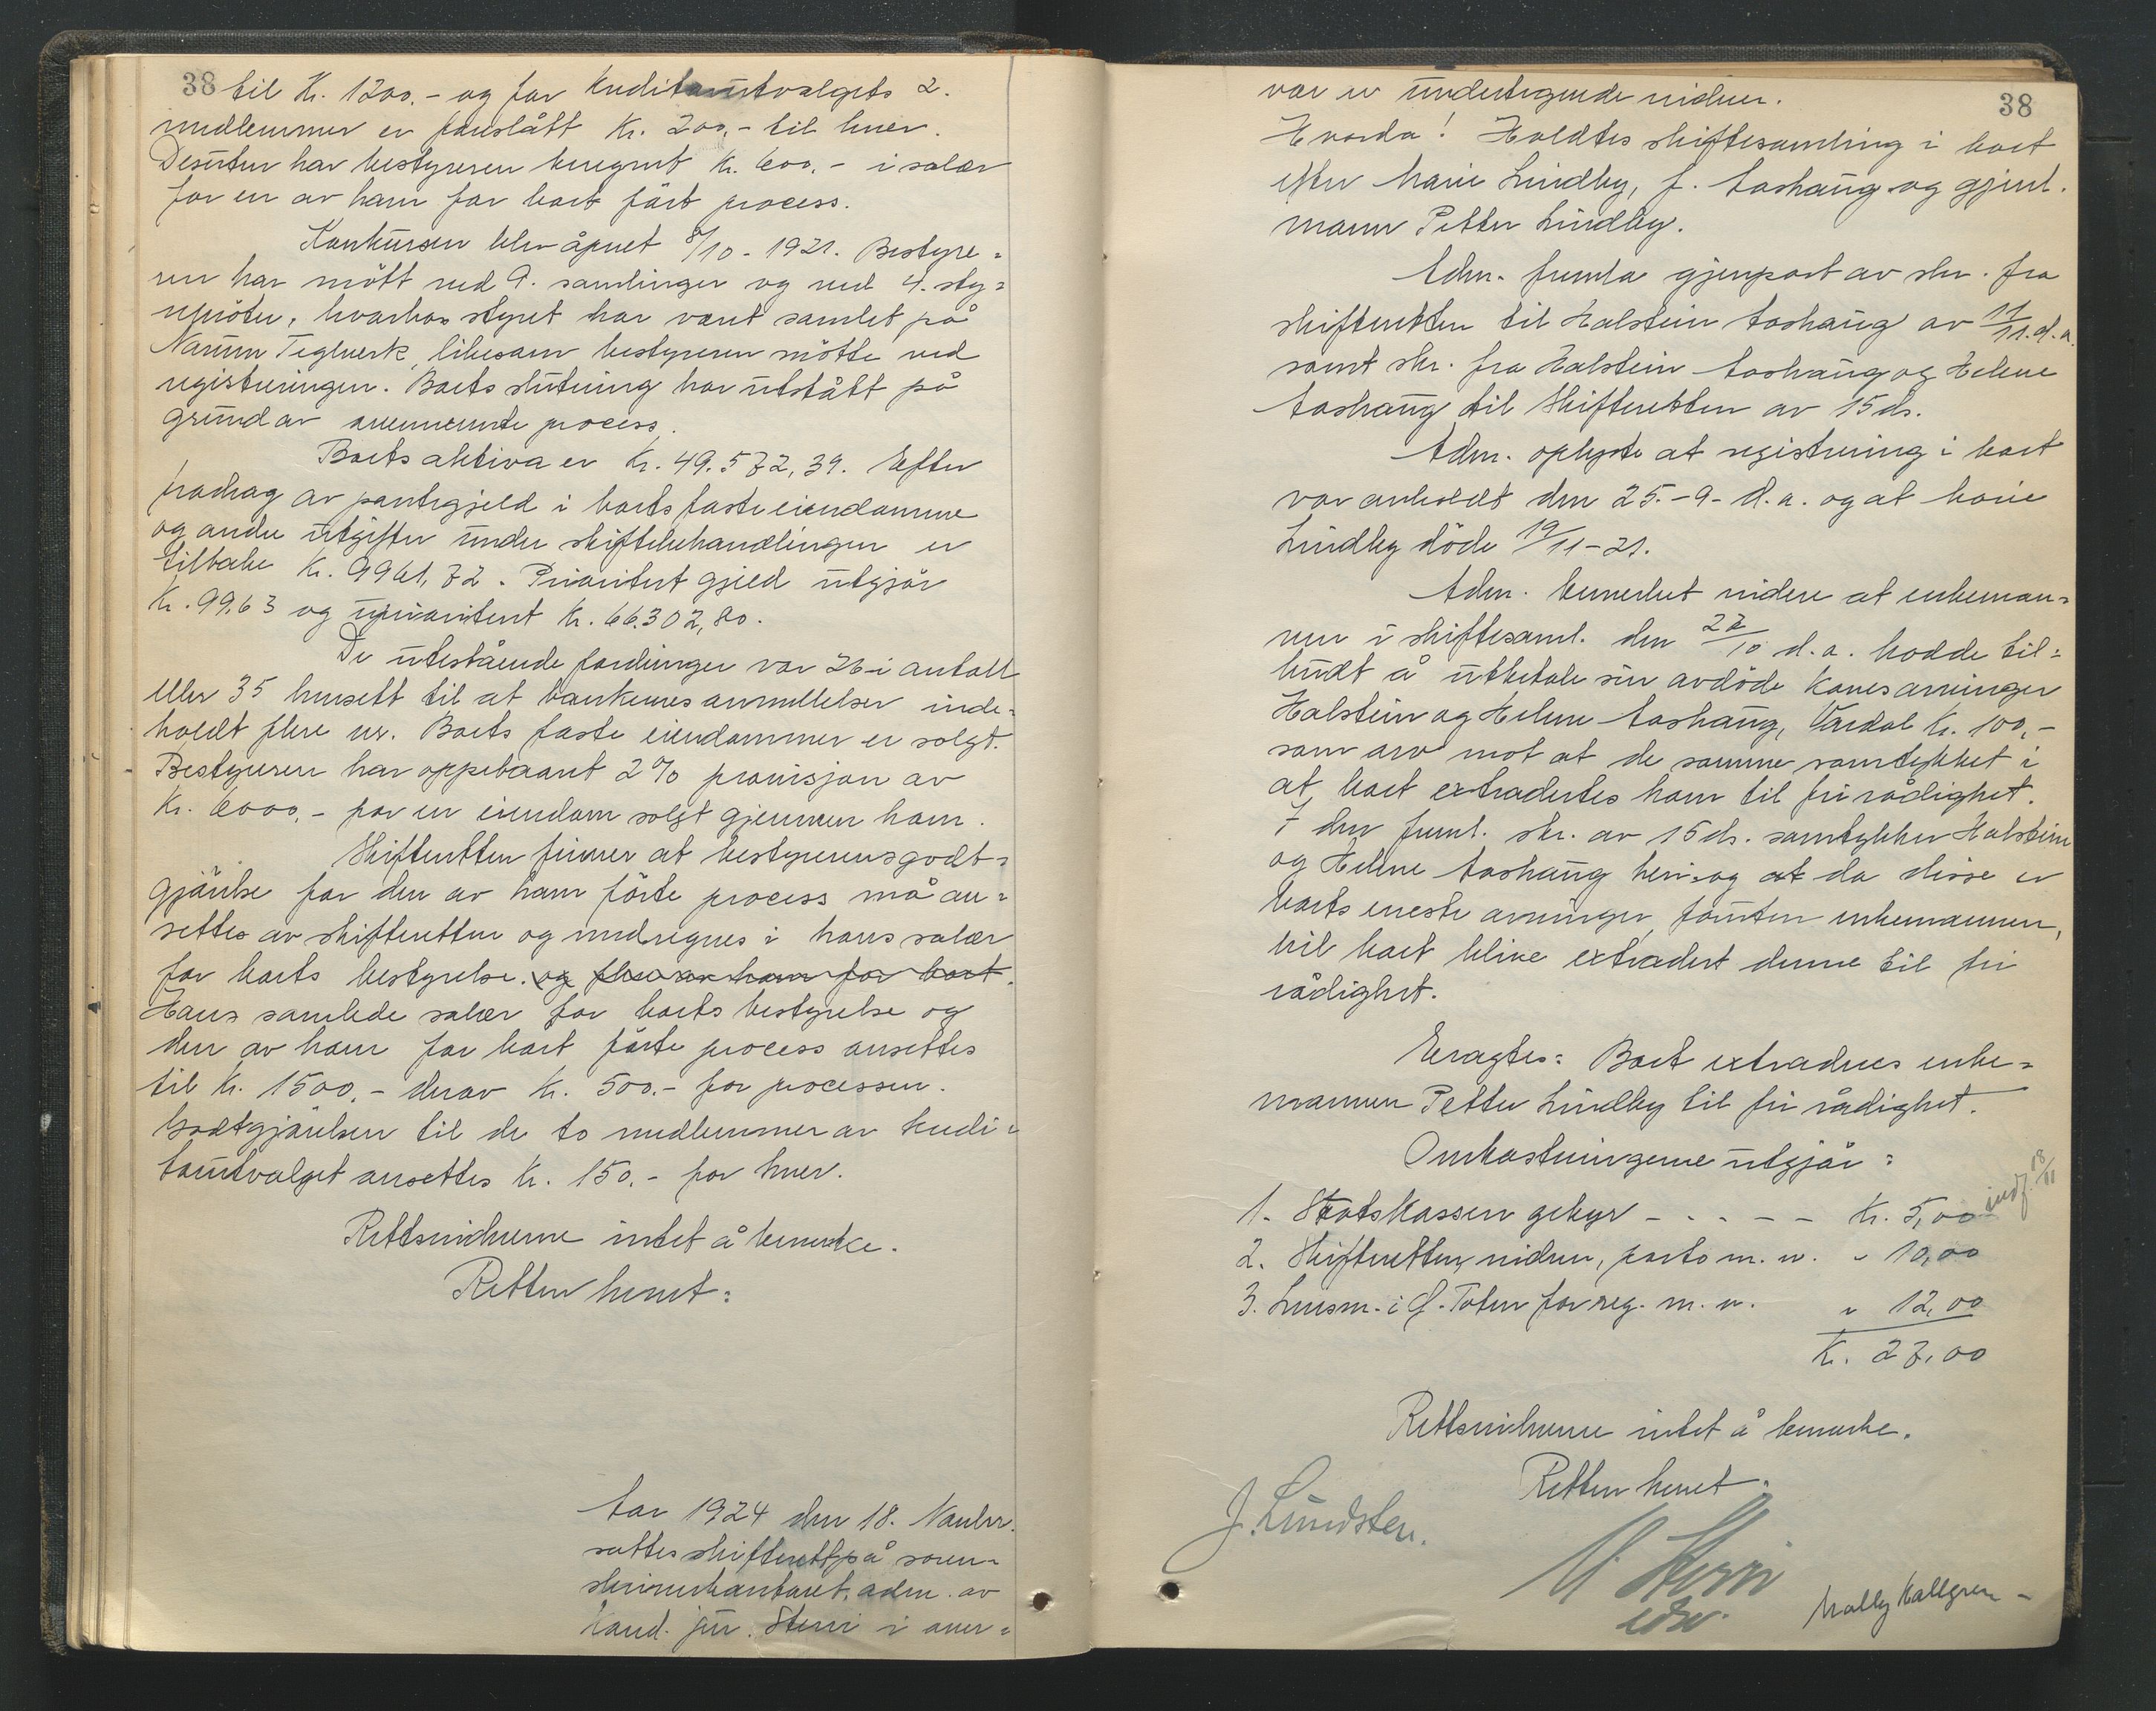 38 til Kr. 1200.- og for kreditorutvalgets 2.
medlemmer er foreslått Kr. 200,- til hver.
Desuten har bestyreren beregnet Kr. 600.- i salær
for en av ham for boet fört process.
Konkursen blev åpnet 8/10 - 1921. Bestyre=
ren har mött ved 9. samlinger og ved 4. sty=
remöter, hvorhos styret har vært samlet på
Teglverk, likesom bestyreren mötte ved
registreringen. Boets slutning har utstått på
grund av ovennevnte process.
Boets aktiva er Kr. 49.572,39. Efter
fradrag av pantegjeld i boets faste eiendomme
og andre utgifter under skiftebehandlingen er
tilbake Kr. 9961,72. Prioritert gjeld utgjör
Kr. 99.63 og uprioritert Kr. 66.302,80.
De utestående fordringer var 26 i antall
eller 35 hensett til at bankenes anmeldelser inde=
holdt flere nr. Boets faste eiendommer er solgt.
Bestyreren har oppebaaret 2% provisjon av
Kr. 6000.- for en eiendom solgt gjennem ham.
Skifteretten finner at bestyrerens godt=
gjörelse for den av ham förte process må an=
settes av skifteretten og medregnes i hans salær
for boets bestyrelse. og av ham for boet.
Hans samlede salær for boets bestyrelse og
den av ham for boet förte process ansettes
til Kr. 1500.- derav Kr. 500.- for processen.
Godtgjörelsen til de to medlemmer av kredi=
torutvalget ansettes Kr. 150.- for hver.
Rettsvidnerne intet å bemerke.
Retten hevet:
Aar 1924 den 18. Novbr.
sattes skifterett på soren=
skriverkontoret, adm. av
Kand. jur. Sterri i over=
38
vær av undertegnede vidner.
Hvorda! Holdtes skiftesamling i boet
efter Marie Lindby, f. Aashaug og gjenl.
mann Petter Lindby.
Adm. fremla gjenpart av skr. fra
skifteretten til Halstein Aashaug av 11/11. d.a.
samt skr. fra Halstein Aashaug og Helene
Aashaug til skifteretten av 15 ds.
Adm. oplyste at registrering i boet
var anholdt den 25.-9- d.a. og at Marie
Lindby döde 19/11-21.
Adm. bemerket videre at enkeman=
nen i skiftesaml. den 27/10 d.a. hadde til=
budt å utbetale sin avdöde kones arvinger
Halstein og Helene Aashaug, Vardal Kr. 100,-
som arv mot at de samme samtykket i
at boet extradertes ham til fri rådighet.
I den freml. skr. av 15 ds. samtykker Halstein
og Helene Aashaug heri og at da disse er
boets eneste arvinger, foruten enkemannen,
vil boet blive extradert denne til fri
rådighet.
Eragtes: Boet extraderes enke=
mannen Petter Lindby til fri rådighet.
Omkostningene utgjör:
1. Statskassen gebyr - - - - - Kr. 5,00 indf. 18/11
2. Skifteretten, vidner, porto m. v. " 10,00
3. Lensm. i Ö. Toten for reg. m. v. " 12,00
Kr. 27,00
Rettsvidnerne intet å bemerke.
Retten hevet:
J. Lundsten.
Sterri
edsv.
Molly Hallgren -